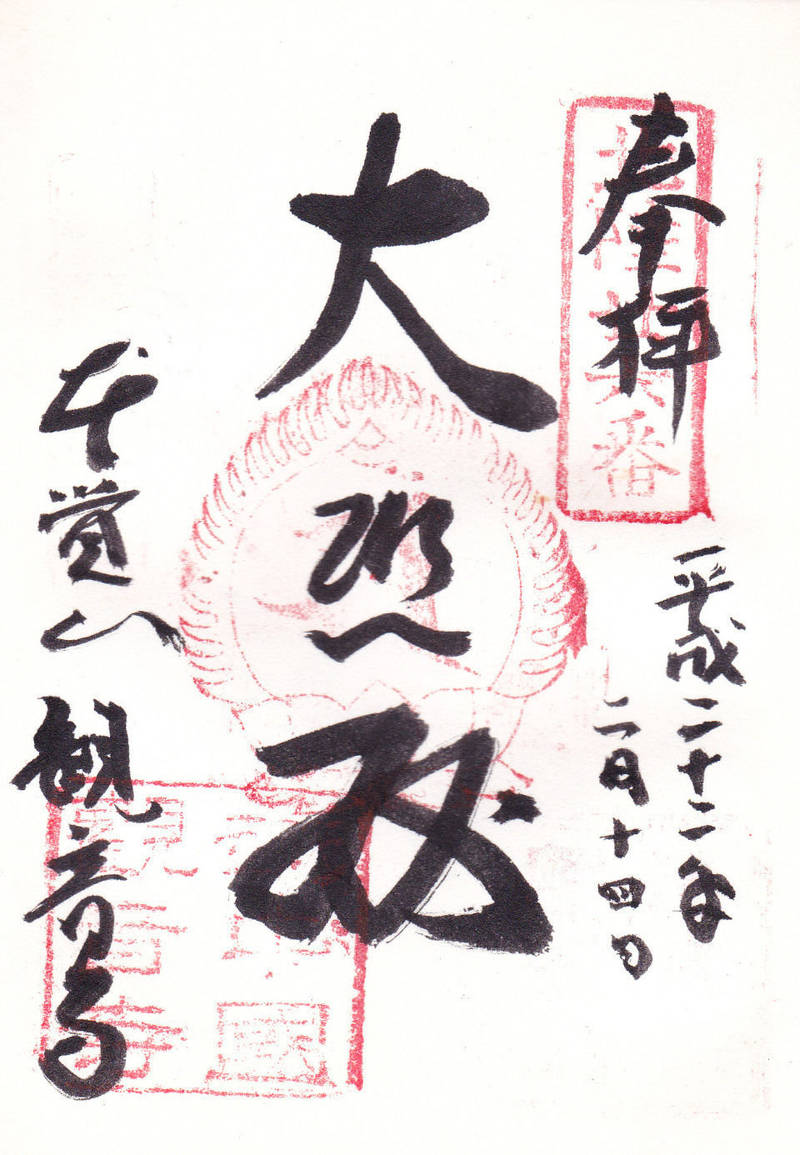 奉拝
番
平成二十二年
二月十四日
大悲殿
本覚山 観音寺
國
観音寺